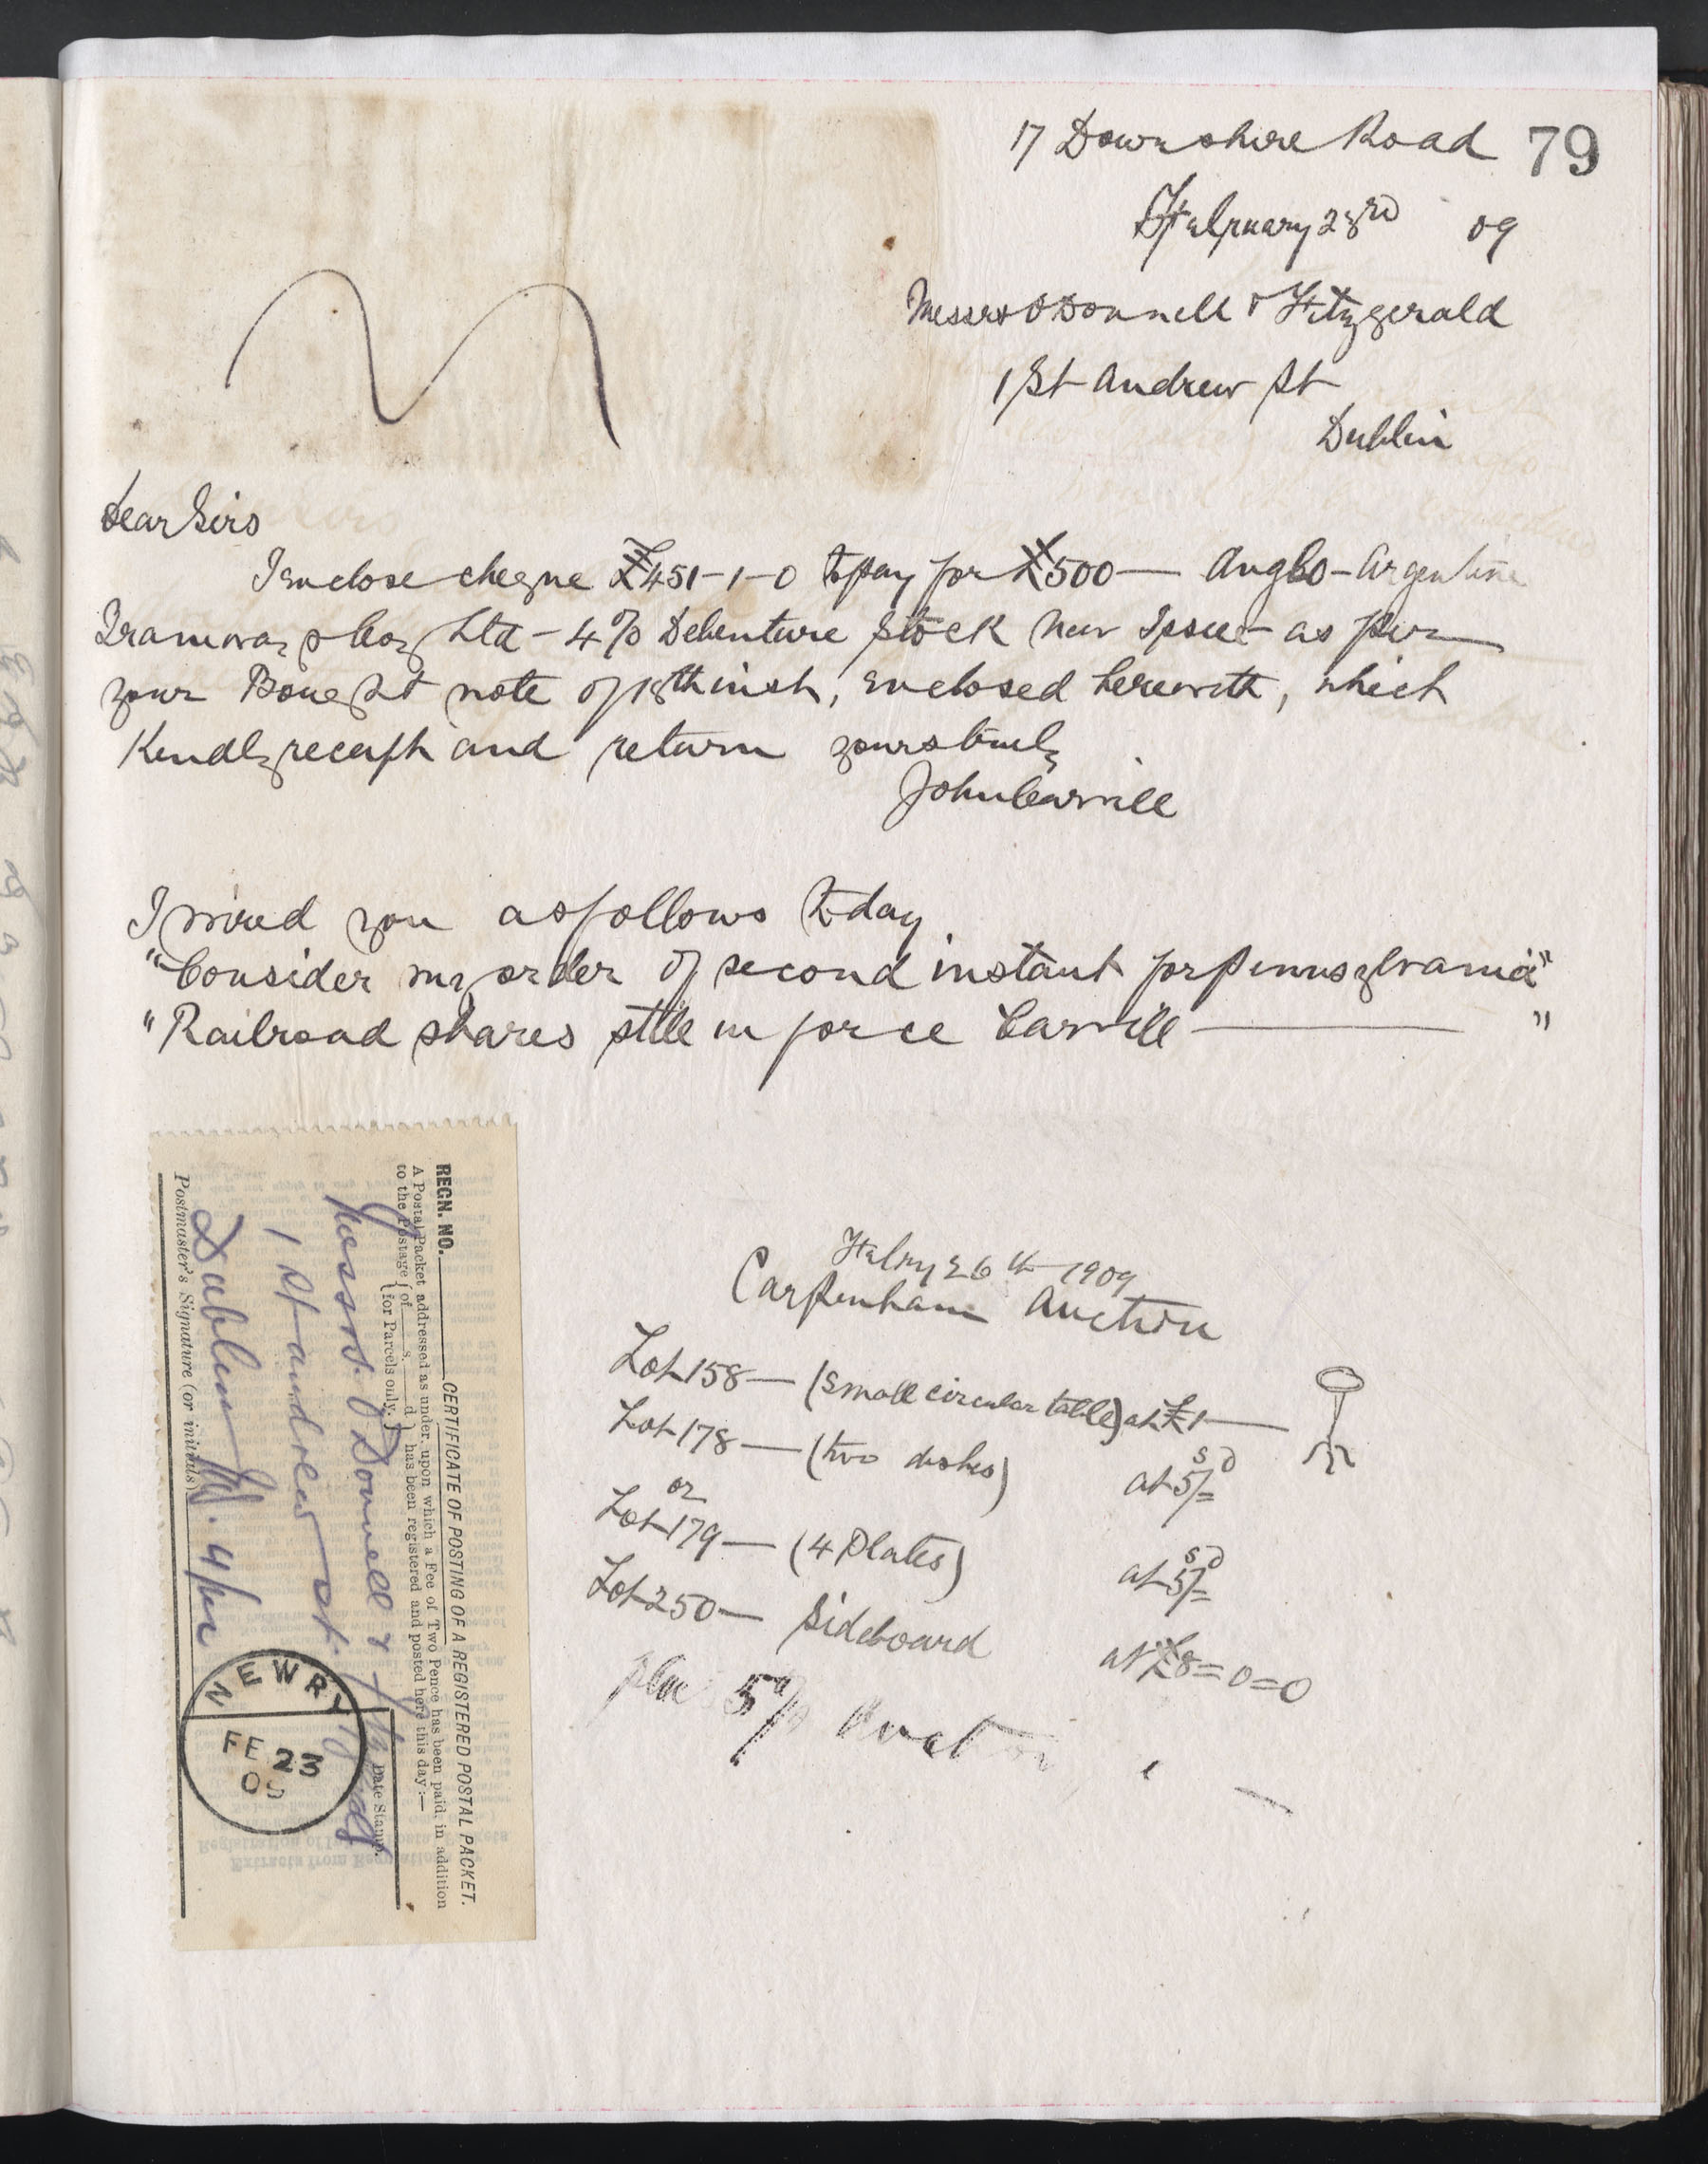 79
17 Downshire Road
February 23rd 09
Messrs O'Donnell & Fitzgerald
1 St Andrew St
Dublin
Dear Sirs
I enclose cheque £451-1-0 to pay for £500— Anglo-Argentine
Tramways Coy Ltd - 4% Debenture Stock New Issue - as per
your Bought note of 18th inst, enclosed herewith, which
Kindly receipt and return yours truly
John Carvill
I wired you as follows today
"Consider my order of second instant for Pennsylvania"
"Railroad shares still in force Carvill ——— "
REGN. NO. CERTIFICATE OF POSTING OF A REGISTERED POSTAL PACKET.
A Postal Packet addressed as under, upon which a Fee of Two Pence has been paid, in addition
to the Postage { of s. d. } has been registered and posted here this day:—
{ for Parcels only. }
Messrs. O'Donnell & Fitzgerald
1 St Andrew St.
Dublin
4/-
Date Stamp.
Postmaster's Signature (or initials)
NEWRY
FE 23
09
Febry 26th 1909
Carpenham Auction
Lot 158 — (small circular table) at £1 —
Lot 178 — (two dishes) at 5/= s d
or
Lot 179 — (4 Plates) at 5/= s d
Lot 250 — Sideboard at £8=0=0
plus 5%